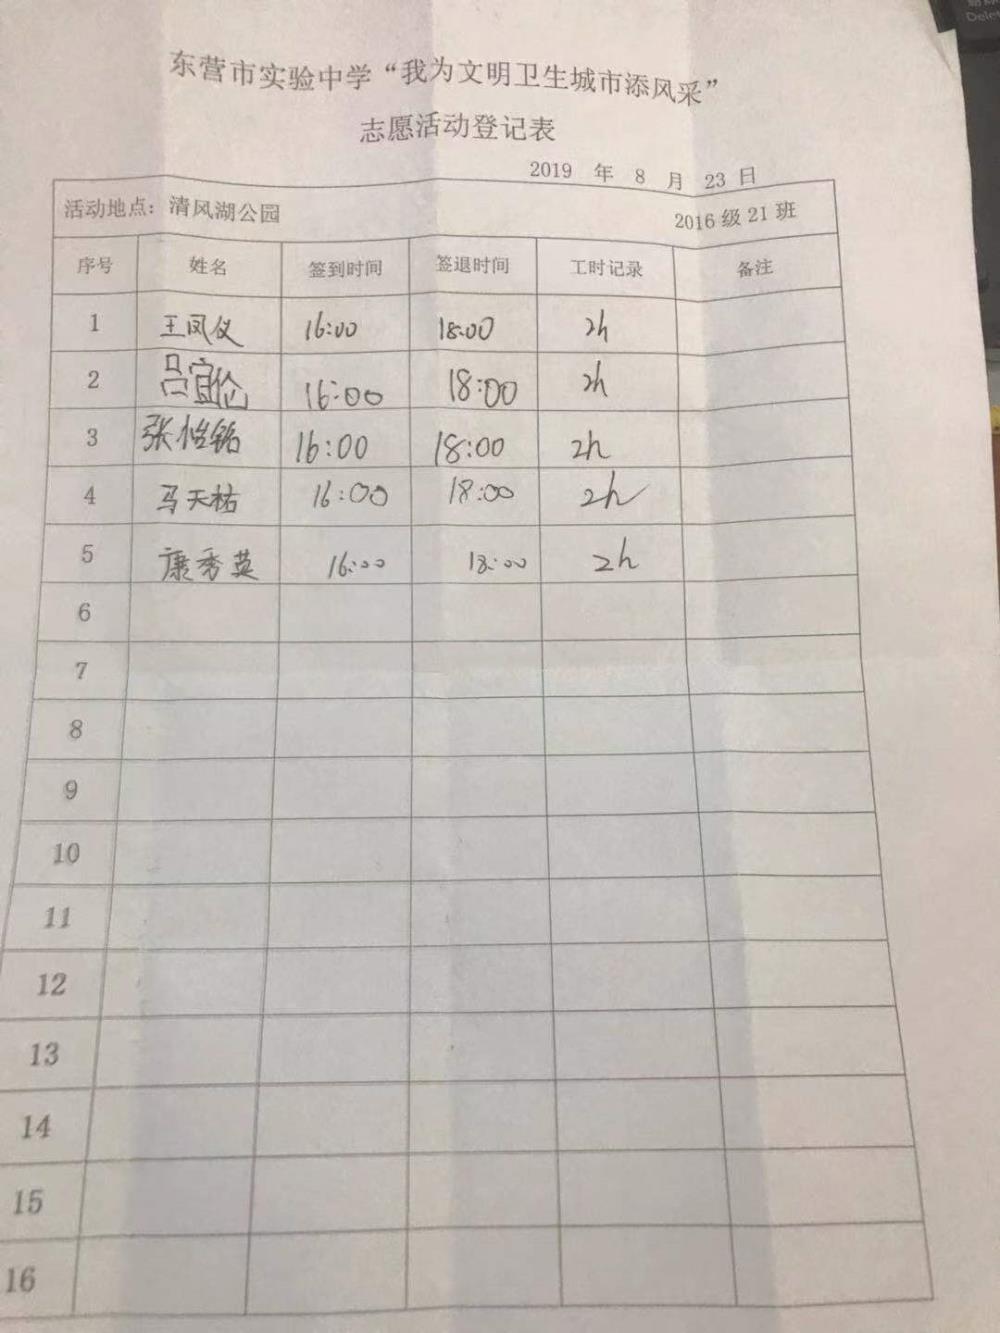 东营市实验中学“我为文明卫生城市添风采”
志愿活动登记表
2019 年 8 月 23 日
活动地点：清风湖公园 2016级21班
序号 姓名 签到时间 签退时间 工时记录 备注
1 王凤仪 16:00 18:00 2h
2 吕宜伦 16:00 18:00 2h
3 张怡铭 16:00 18:00 2h
4 马天祐 16:00 18:00 2h
5 康秀英 16:00 18:00 2h
6
7
8
9
10
11
12
13
14
15
16